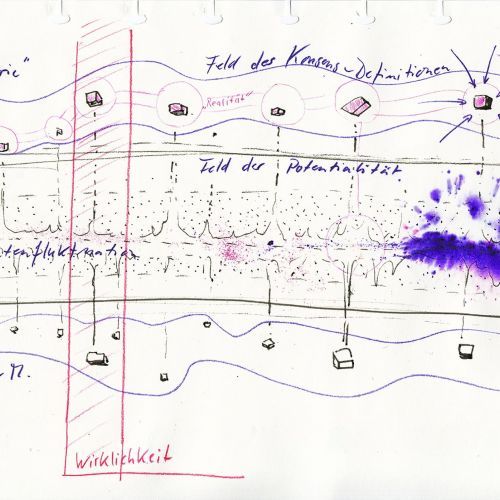 rie"
Feld des Konsens-Definitionen
"Realität"
Feld der Potentialität
tenfluktuation
M.
Wirklichkeit